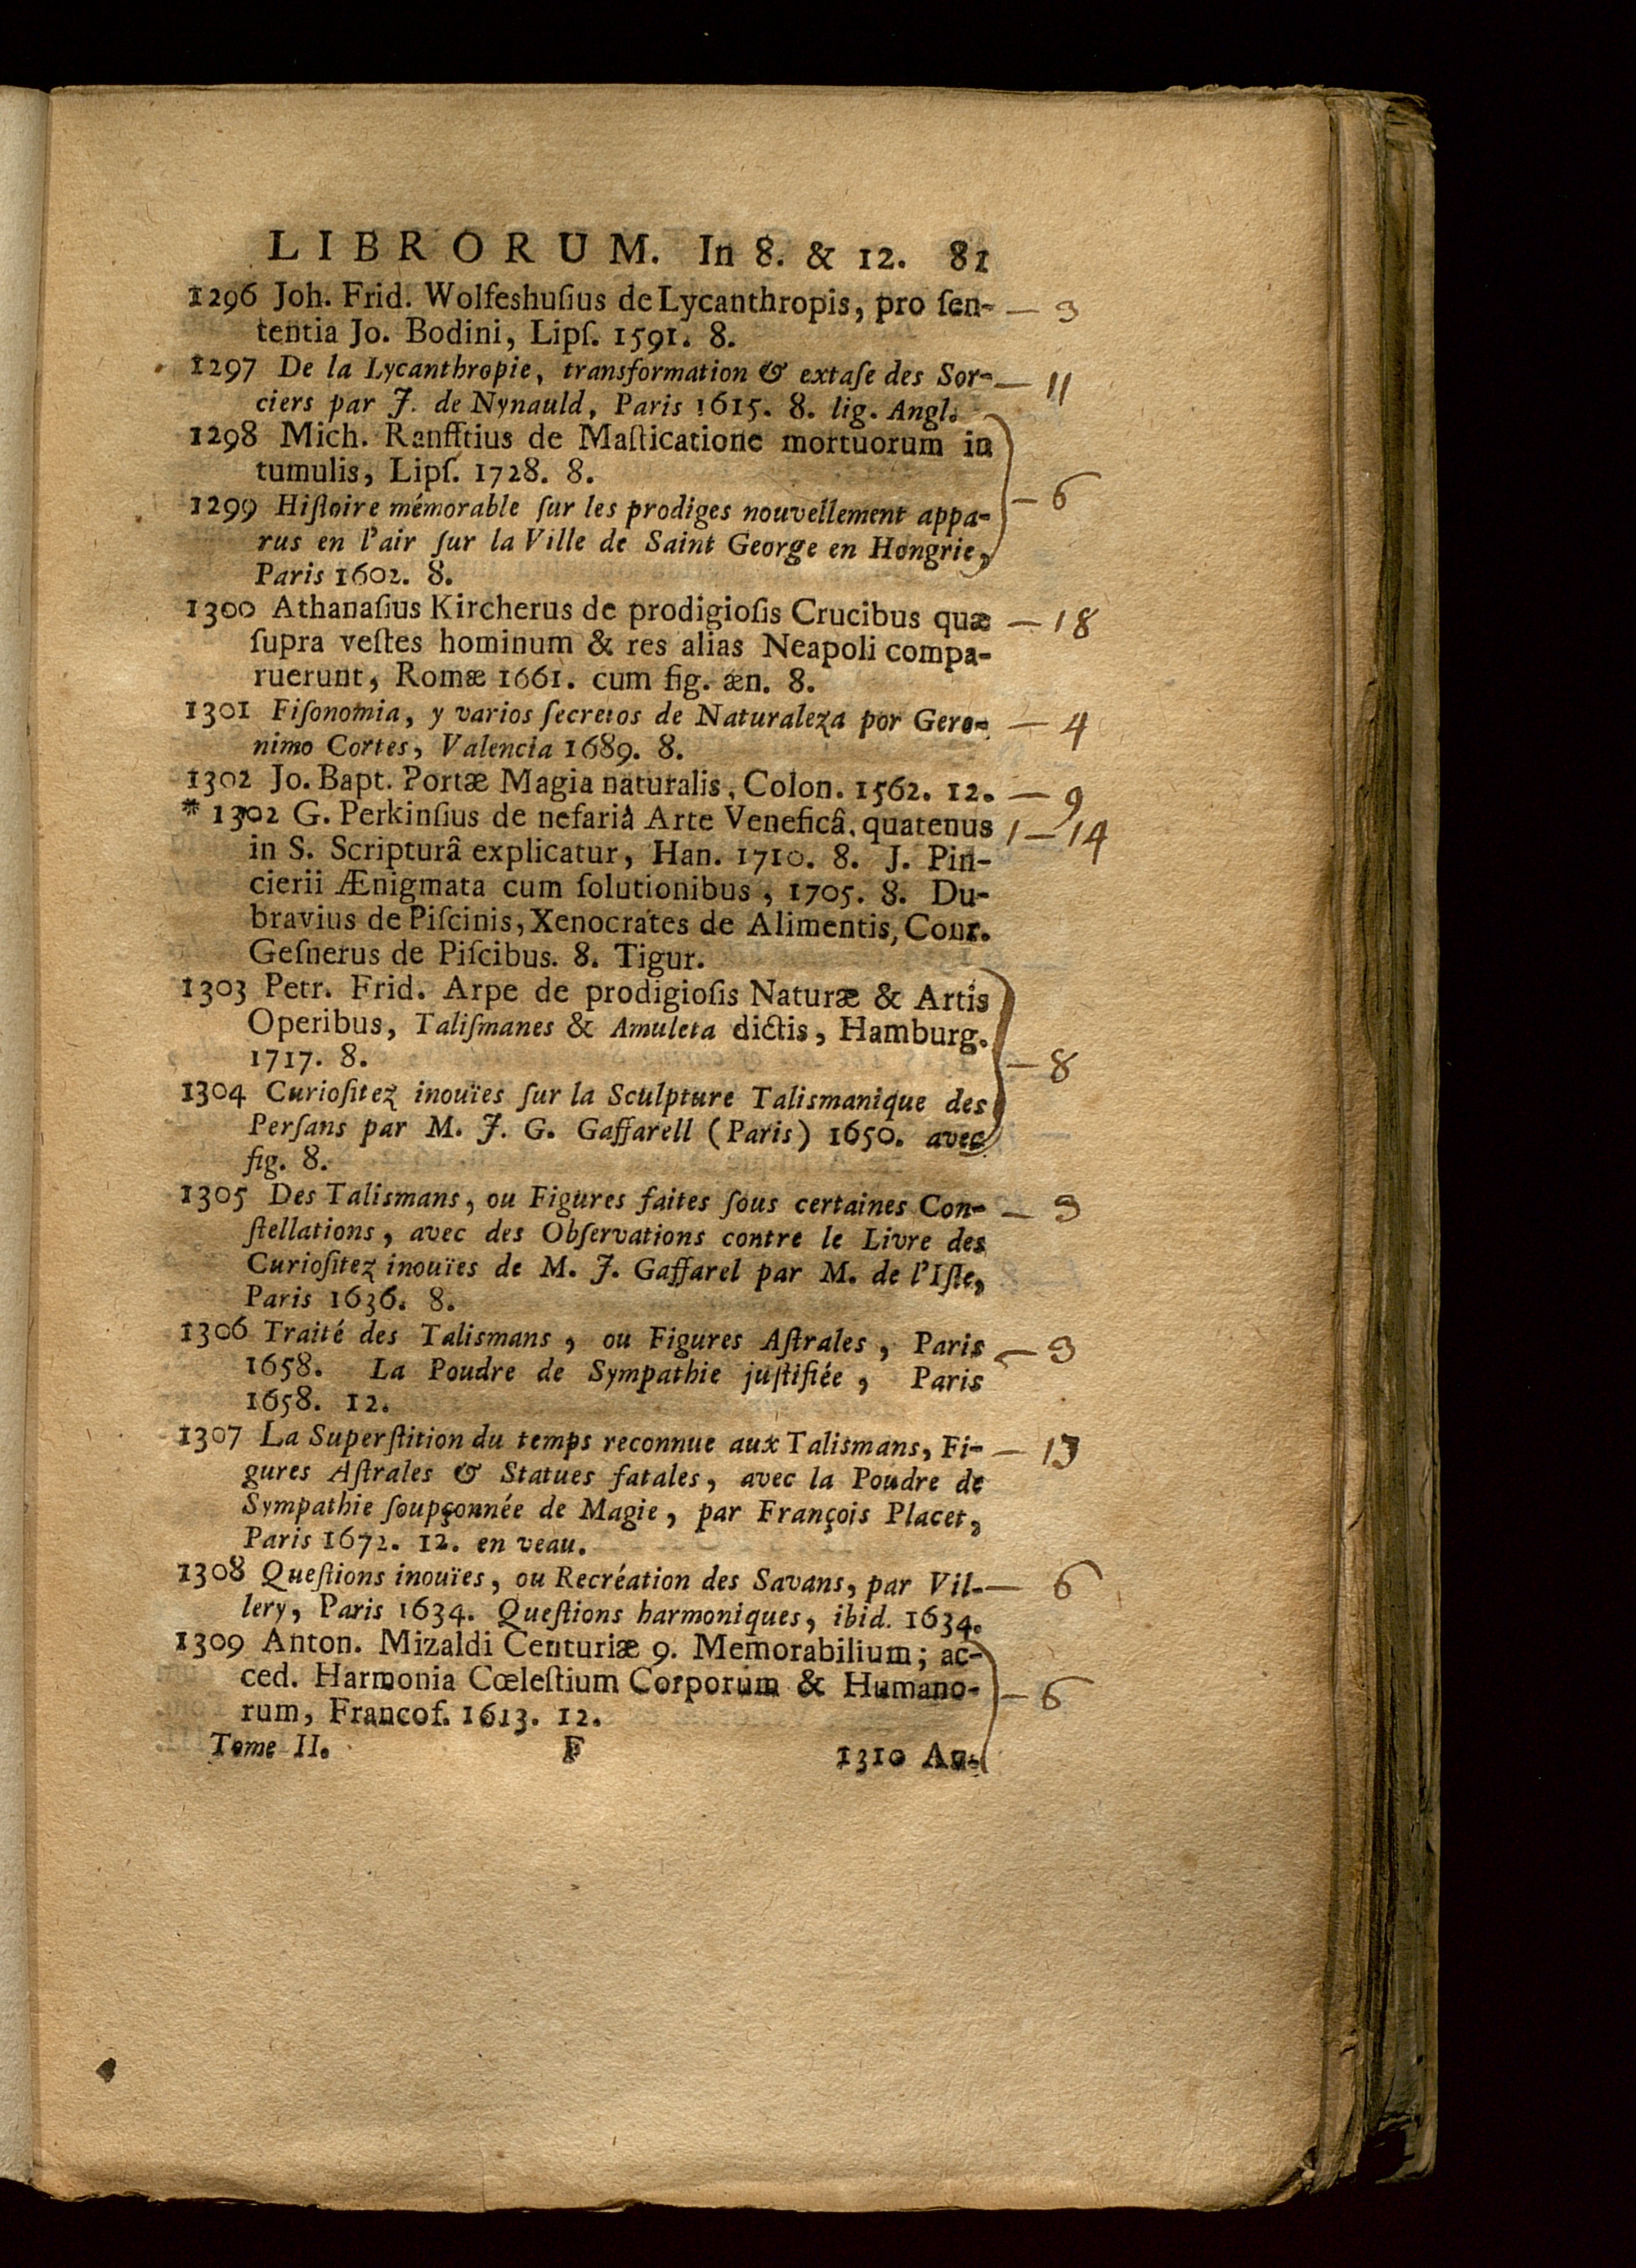 LIBRORUM. In 8. & 12. 81
1296 Joh. Frid. Wolfeshuſius de Lycanthropis, pro ſen- — 3
tentia Jo. Bodini, Lipſ. 1591. 8.
1297 De la Lycanthropie, transformation & extaſe des Sor- — 11
ciers par J. de Nynauld, Paris 1615. 8. lig. Angl.
1298 Mich. Ranfftius de Maſticatione mortuorum in
tumulis, Lipſ. 1728. 8.
— 6
1299 Hiſtoire mémorable ſur les prodiges nouvellement appa-
rus en l'air ſur la Ville de Saint George en Hongrie,
Paris 1602. 8.
1300 Athanaſius Kircherus de prodigioſis Crucibus quæ — 18
ſupra veſtes hominum & res alias Neapoli compa-
ruerunt, Romæ 1661. cum fig. æn. 8.
1301 Fiſonomia, y varios ſecretos de Naturaleza por Gero- — 4
nimo Cortes, Valencia 1689. 8.
1302 Jo. Bapt. Portæ Magia naturalis, Colon. 1562. 12. — 9
* 1302 G. Perkinſius de nefariâ Arte Veneficâ, quatenus 1 — 14
in S. Scripturâ explicatur, Han. 1710. 8. J. Pin-
cierii Ænigmata cum ſolutionibus, 1705. 8. Du-
bravius de Piſcinis, Xenocrates de Alimentis, Conr.
Geſnerus de Piſcibus. 8. Tigur.
1303 Petr. Frid. Arpe de prodigioſis Naturæ & Artis
Operibus, Taliſmanes & Amuleta dictis, Hamburg.
1717. 8.
— 8
1304 Curioſitez inouïes ſur la Sculpture Talismanique des
Perſans par M. J. G. Gaffarell (Paris) 1650. avec
fig. 8.
1305 Des Talismans, ou Figures faites ſous certaines Con- — 3
ſtellations, avec des Obſervations contre le Livre des
Curioſitez inouïes de M. J. Gaffarel par M. de l'Iſle,
Paris 1636. 8.
1306 Traité des Talismans, ou Figures Aſtrales, Paris — 3
1658. La Poudre de Sympathie juſtifiée, Paris
1658. 12.
1307 La Superſtition du temps reconnue aux Talismans, Fi- — 13
gures Aſtrales & Statues fatales, avec la Poudre de
Sympathie ſoupçonnée de Magie, par François Placet,
Paris 1672. 12. en veau.
1308 Queſtions inouïes, ou Recréation des Savans, par Vil- — 6
lery, Paris 1634. Queſtions harmoniques, ibid. 1634.
1309 Anton. Mizaldi Centuriæ 9. Memorabilium; ac-
ced. Harmonia Cœleſtium Corporum & Humano- — 6
rum, Francof. 1613. 12.
Tome II. F 1310 An-